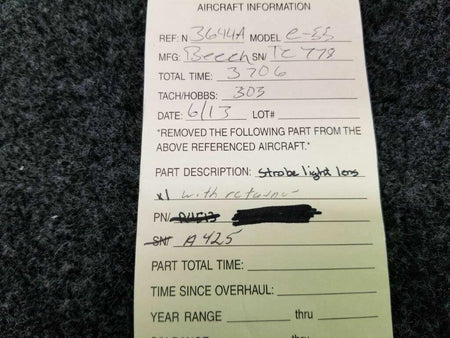 AIRCRAFT INFORMATION
REF: N 3644A MODEL C-55
MFG: Beech SN/ TC 778
TOTAL TIME: 3706
TACH/HOBBS: 303
DATE: 6/13 LOT#
"REMOVED THE FOLLOWING PART FROM THE
ABOVE REFERENCED AIRCRAFT."
PART DESCRIPTION: strobe light lens
x1 with retainer
PN/
SN/ A425
PART TOTAL TIME:
TIME SINCE OVERHAUL:
YEAR RANGE thru
thru